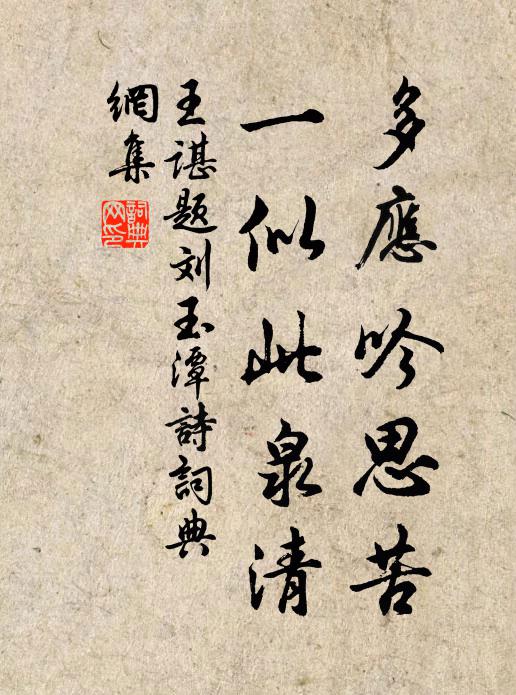 多應吟思苦
一似此泉清
王諶题刘玉潭詩詞典
網集
詞典
网印